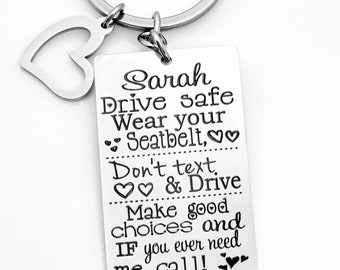 Sarah
Drive safe
Wear your
Seatbelt,
Don't text
& Drive
Make good
choices and
IF you ever need
me call!